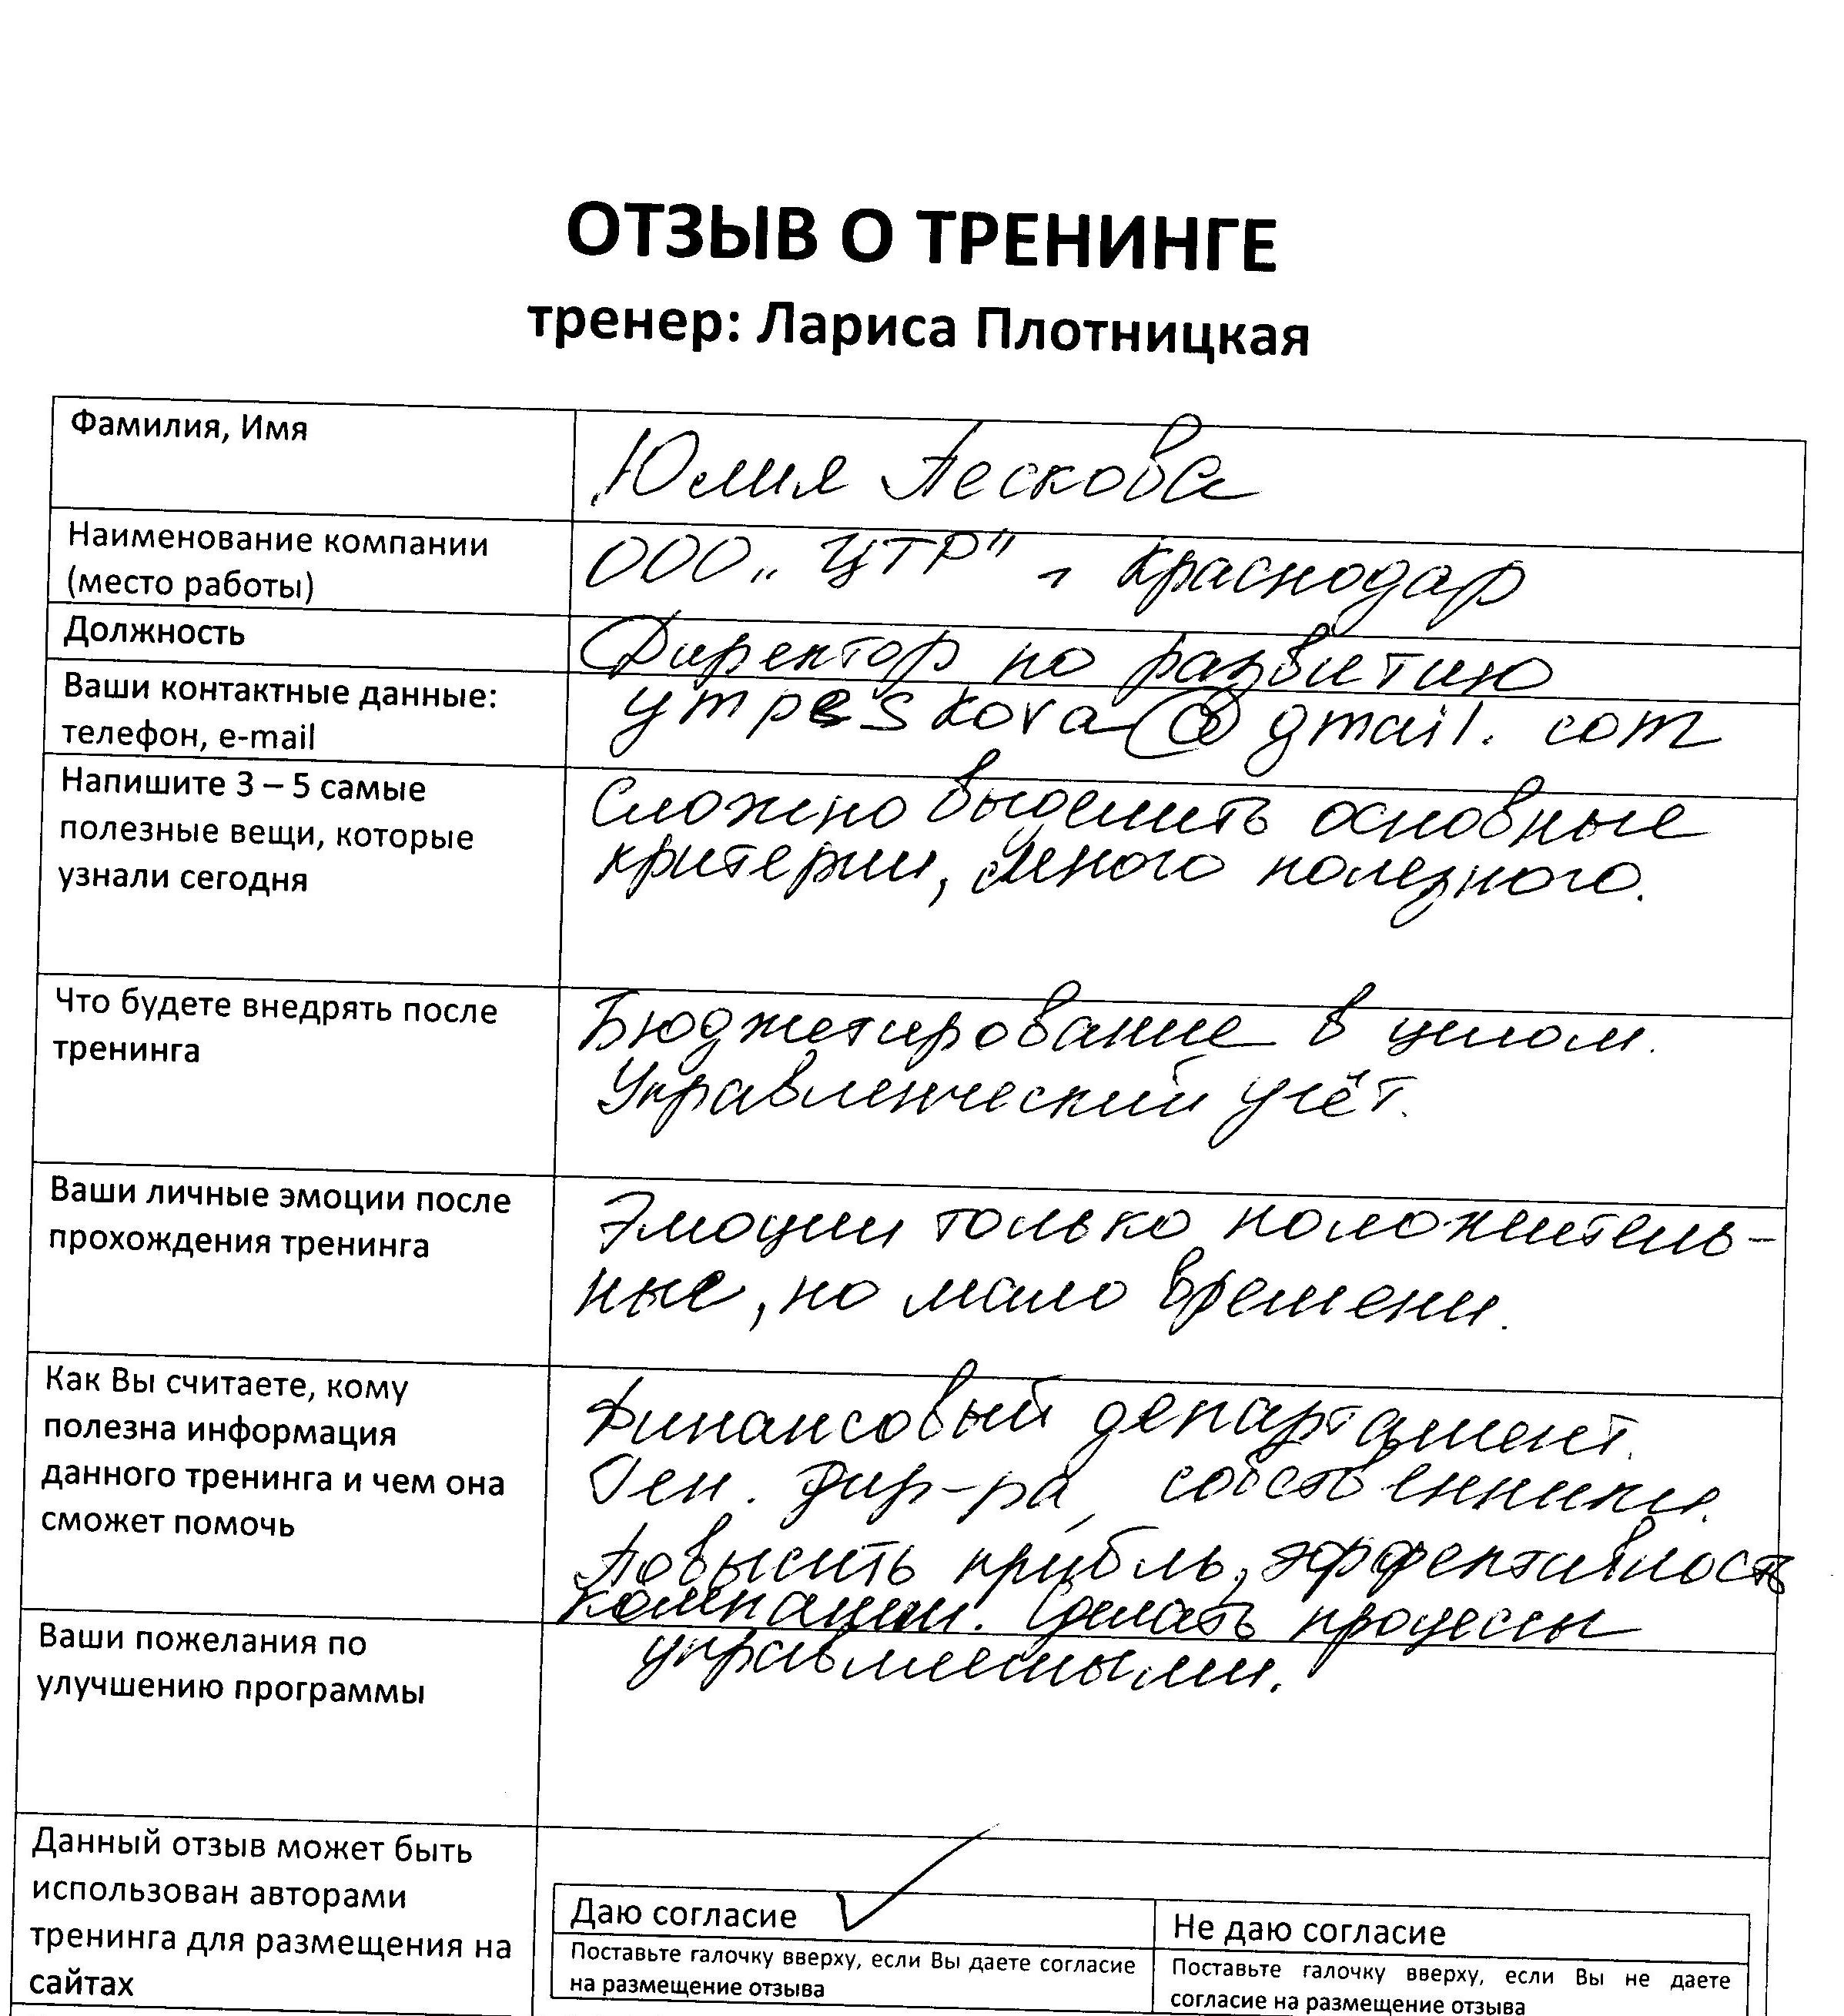 ОТЗЫВ О ТРЕНИНГЕ
тренер: Лариса Плотницкая
Фамилия, Имя
Юлия Пескова
Наименование компании
(место работы)
ООО „ЦТР", Краснодар
Должность
Директор по развитию
Ваши контактные данные:
телефон, e-mail
ympeskova@gmail.com
Напишите 3 – 5 самые
полезные вещи, которые
узнали сегодня
Сложно выделить основные
критерии, много полезного.
Что будете внедрять после
тренинга
Бюджетирование в целом.
Управленческий учёт.
Ваши личные эмоции после
прохождения тренинга
Эмоции только положитель-
ные, но мало времени.
Как Вы считаете, кому
полезна информация
данного тренинга и чем она
сможет помочь
Финансовый департамент.
Ген. дир-ра, собственники.
Повысить прибль, эффективность
компании. Сделать процессы
управляемыми.
Ваши пожелания по
улучшению программы
Данный отзыв может быть
использован авторами
тренинга для размещения на
сайтах
Даю согласие
Поставьте галочку вверху, если Вы даете согласие
на размещение отзыва
Не даю согласие
Поставьте галочку вверху, если Вы не даете
согласие на размещение отзыва